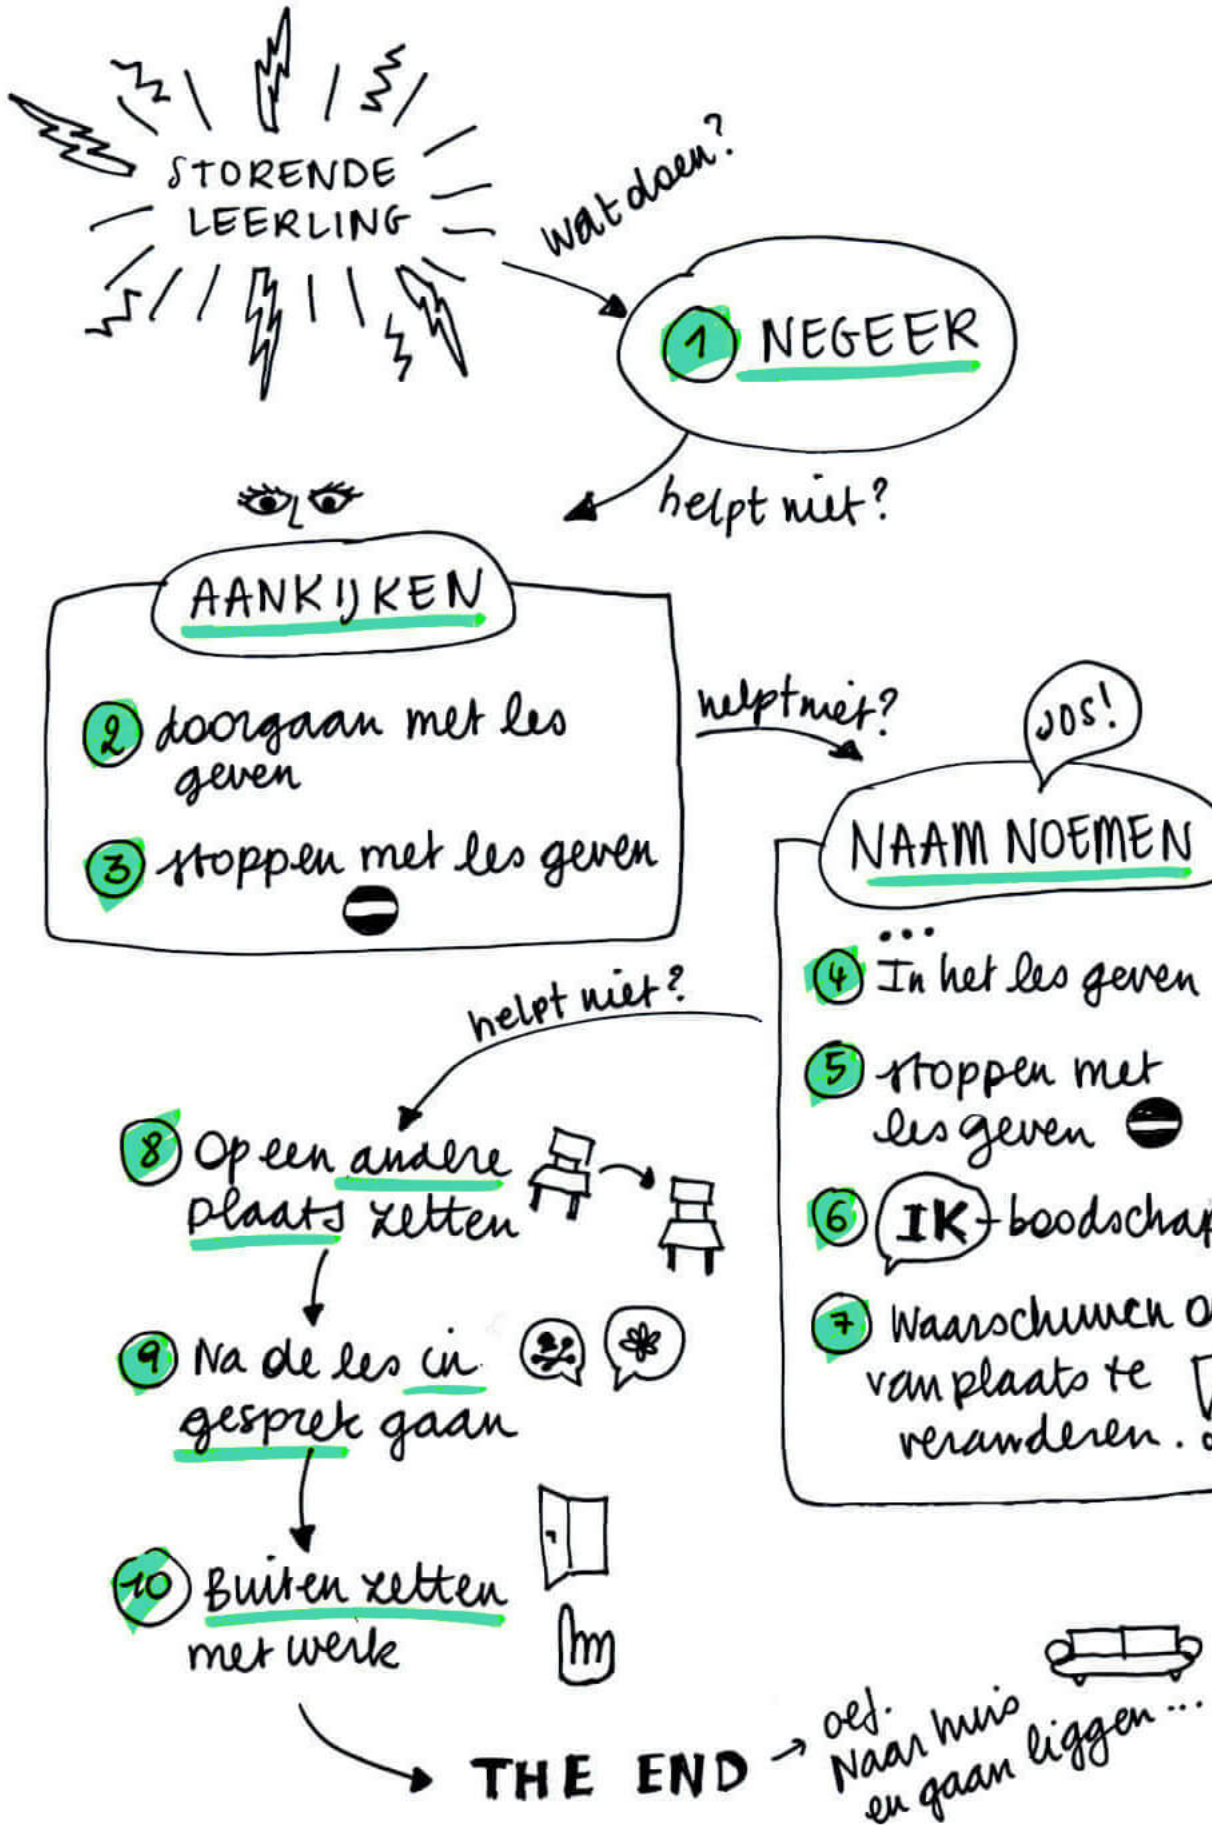 STORENDE
LEERLING
wat doen?
1 NEGEER
helpt niet?
AANKIJKEN
2 doorgaan met les
geven
3 stoppen met les geven
helpt niet?
JOS!
NAAM NOEMEN
...
4 In het les geven
5 stoppen met
les geven
6 IK-boodschap
7 Waarschuwen
van plaats te
veranderen.
helpt niet?
8 Op een andere
plaats zetten
9 Na de les in
gesprek gaan
10 Buiten zetten
met werk
THE END
oef.
Naar huis
en gaan liggen...